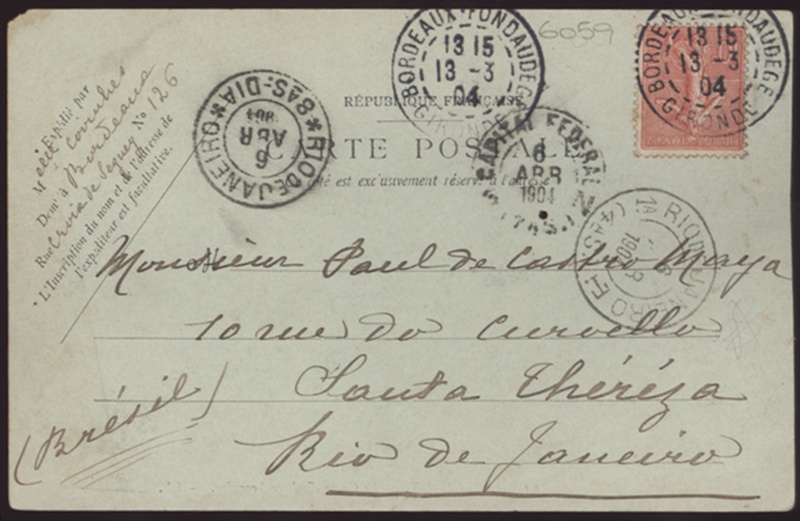 6059
BORDEAUX-FONDAUDEGE
13 15
13 -3
04
GIRONDE
BORDEAUX-FONDAUDEGE
13 15
13 -3
04
GIRONDE
RÉPUBLIQUE FRANÇAISE
CARTE POSTALE
est exclusivement réservé à l'adresse
RIO DE JANEIRO
8AS. DIA
6
ABR
CAPITAL FEDERAL
6
ABR
1904
RIO DE JANEIRO
Expédié par
M elle
Demt à Bordeaux
Rue Croix de Seguey No 126
L'Inscription du nom et de l'adresse de
l'expéditeur est facultative.
Monsieur Paul de Castro Maya
10 rue do Curvello
Santa Théréza
(Brésil)
Rio de Janeiro